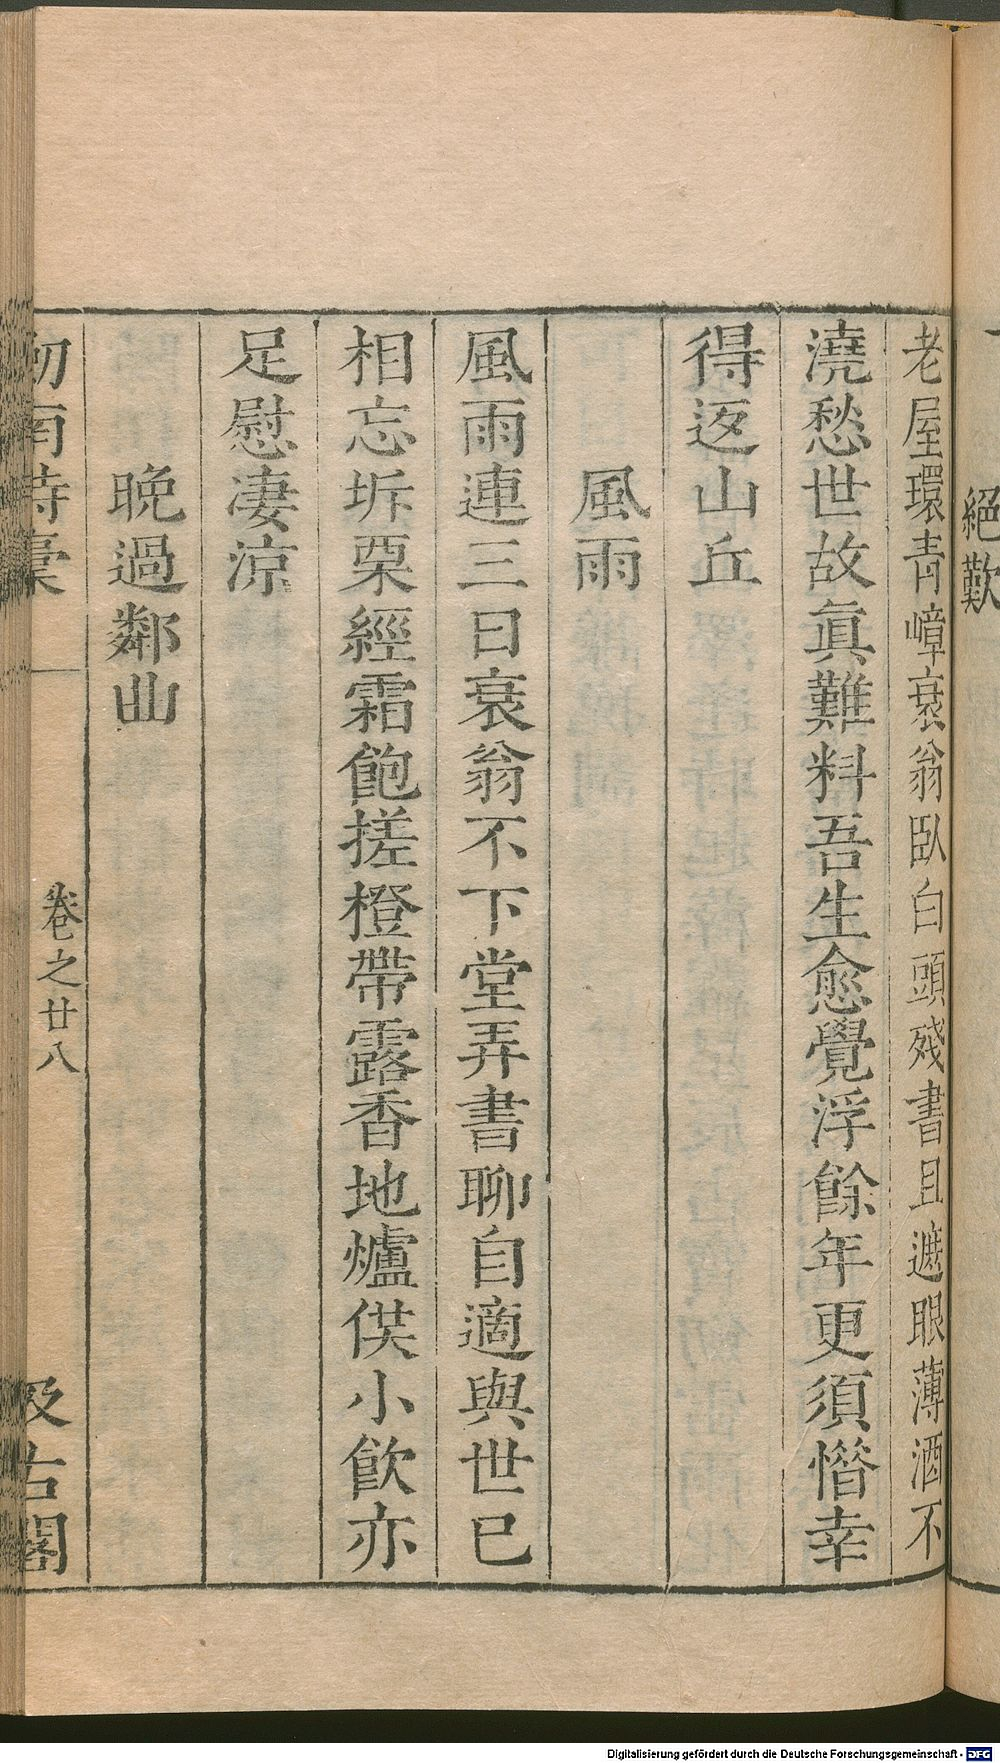 絕歎
老屋環青嶂衰翁臥白頭殘書且遮眼薄酒不
澆愁世故眞難料吾生愈覺浮餘年更須惜幸
得返山丘
風雨
風雨連三日衰翁不下堂弄書聊自適與世已
相忘坼栗經霜飽搓橙帶露香地爐供小飲亦
足慰凄涼
晚過鄰曲
劒南詩稾
卷之廿八
汲古閣
Digitalisierung gefördert durch die Deutsche Forschungsgemeinschaft - DFG